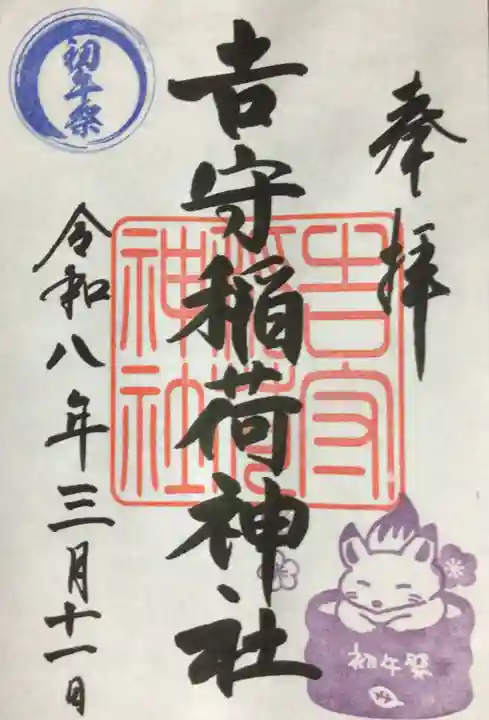 奉拝
吉守稲荷神社
吉守
稲荷
神社
初午祭
令和八年三月十一日
初午祭